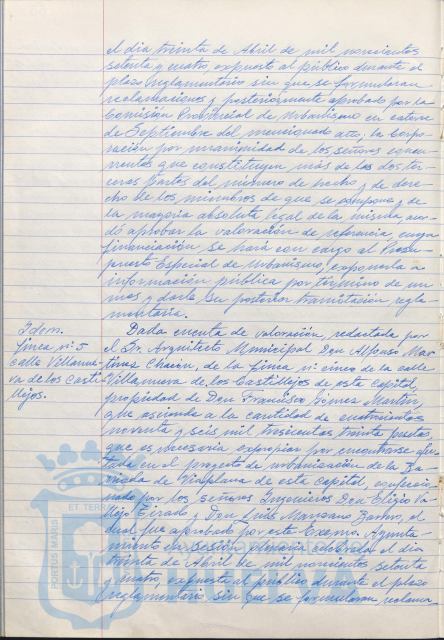 el dia treinta de Abril de mil novecientos
setenta y cuatro, expuesto al público durante el
plazo reglamentario sin que se formularan
reclamaciones y posteriormente aprobado por la
Comisión Provincial de Urbanismo en catorce
de Septiembre del mencionado año, la Corpo-
ración por unanimidad de los señores concu-
rrentes que constituyen más de las dos ter-
ceras partes del número de hecho y de dere-
cho de los miembros de que se compone y de
la mayoria absoluta legal de la misma, acor-
dó aprobar la valoración de referencia, cuya
financiación se hará con cargo al Presu-
puesto Especial de Urbanismo, exponerla a
información pública por término de un
mes y darle su posterior tramitación regla-
mentaria.
Idem.
finca nº 5
calle Villanue-
va de los Casti-
llejos.
Dada cuenta de valoración redactada por
el Sr. Arquitecto Municipal Don Alfonso Mar-
tinez Chacón, de la finca nº cinco de la calle
Villanueva de los Castillejos de esta capital,
propiedad de Don Francisco Gómez Martín,
que asciende a la cantidad de cuatrocientas
noventa y seis mil trescientas treinta pesetas,
que es necesario expropiar por encontrarse afec-
tada en el proyecto de urbanización de la Ba-
rriada de Viaplana de esta capital, confeccio-
nado por los señores Ingenieros Don Elisio Va-
llejo Tirado y Don Luis Manzano, el
cual fue aprobado por este Excmo. Ayunta-
miento en sesión plenaria celebrada el dia
treinta de Abril de mil novecientos setenta
y cuatro, expuesto al público durante el plazo
reglamentario sin que se formularan reclama-
PORTUS MARIS
ET TERR